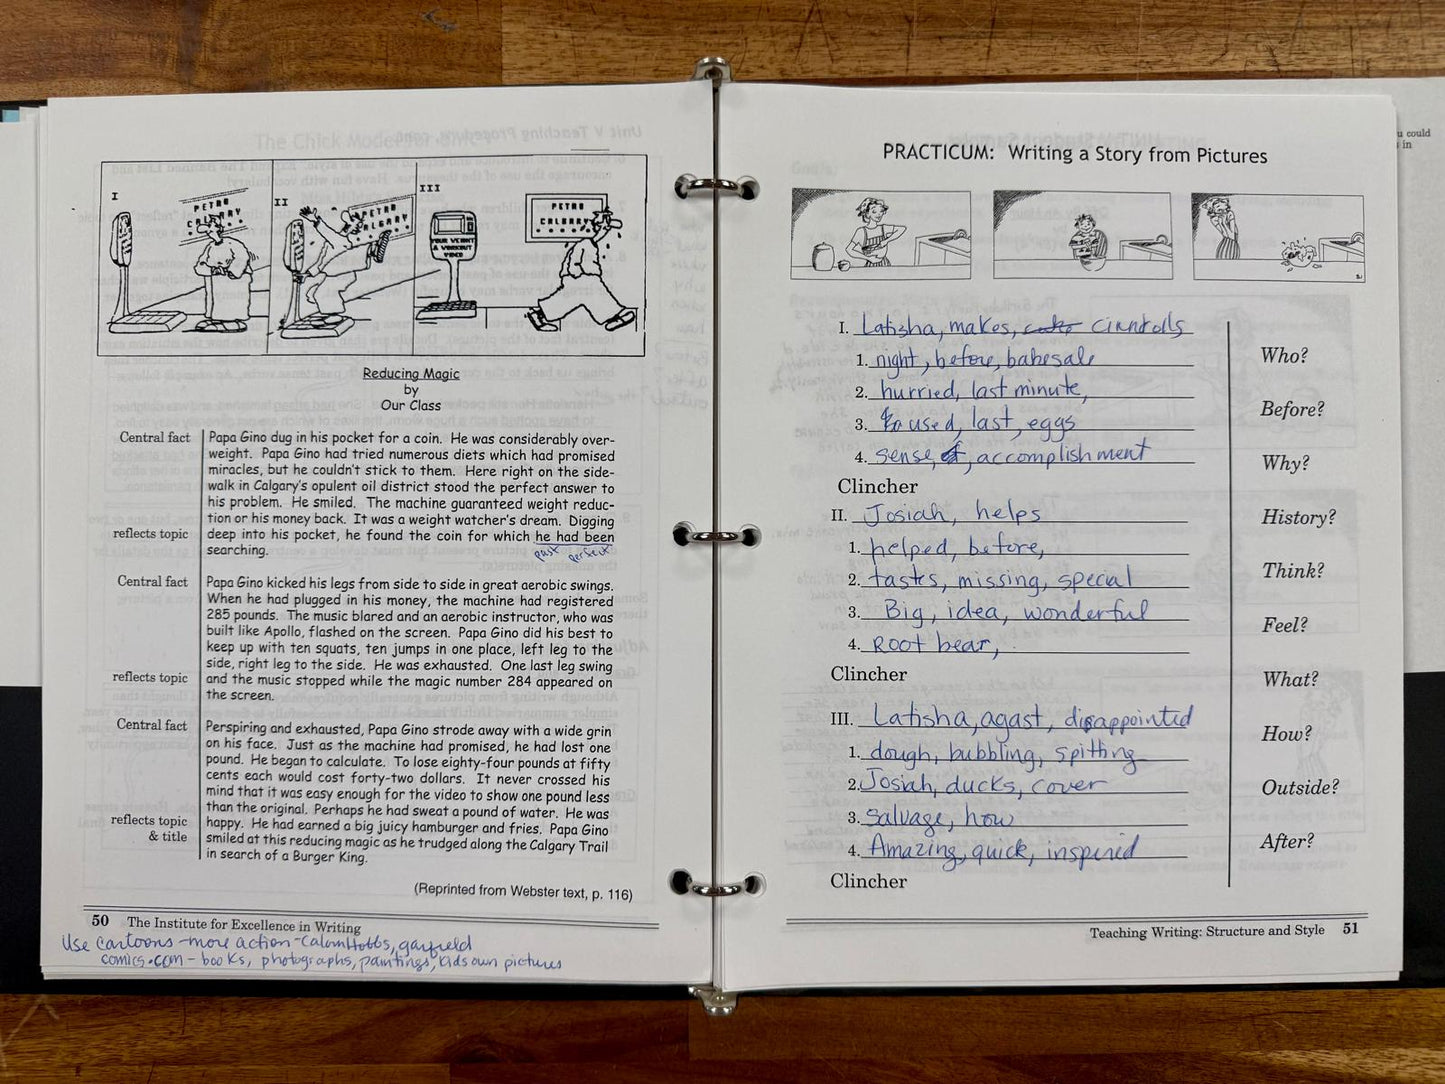 I
II
III
PETRO
CALGARY
PETRO
CALGARY
YOUR WEIGHT
& WORKOUT
VIDEO
PETRO
CALGARY
Reducing Magic
by
Our Class
Central fact
Papa Gino dug in his pocket for a coin. He was considerably over-
weight. Papa Gino had tried numerous diets which had promised
miracles, but he couldn't stick to them. Here right on the side-
walk in Calgary's opulent oil district stood the perfect answer to
his problem. He smiled. The machine guaranteed weight reduc-
tion or his money back. It was a weight watcher's dream. Digging
reflects topic
deep into his pocket, he found the coin for which he had been
searching.
past perfect
Central fact
Papa Gino kicked his legs from side to side in great aerobic swings.
When he had plugged in his money, the machine had registered
285 pounds. The music blared and an aerobic instructor, who was
built like Apollo, flashed on the screen. Papa Gino did his best to
keep up with ten squats, ten jumps in one place, left leg to the
side, right leg to the side. He was exhausted. One last leg swing
reflects topic
and the music stopped while the magic number 284 appeared on
the screen.
Central fact
Perspiring and exhausted, Papa Gino strode away with a wide grin
on his face. Just as the machine had promised, he had lost one
pound. He began to calculate. To lose eighty-four pounds at fifty
cents each would cost forty-two dollars. It never crossed his
mind that it was easy enough for the video to show one pound less
than the original. Perhaps he had sweat a pound of water. He was
reflects topic
& title
happy. He had earned a big juicy hamburger and fries. Papa Gino
smiled at this reducing magic as he trudged along the Calgary Trail
in search of a Burger King.
(Reprinted from Webster text, p. 116)
50 The Institute for Excellence in Writing
Use cartoons - more action - CalvinHobbs, garfield
comics.com - books, photographs, paintings, kids own pictures
PRACTICUM: Writing a Story from Pictures
I. Latisha, makes, cinnrolls
1. night, before, bakesale
2. hurried, last minute,
3. used, last, eggs
4. sense, of, accomplishment
Clincher
II. Josiah, helps
1. helped, before,
2. tastes, missing, special
3. Big, idea, wonderful
4. Root bear,
Clincher
III. Latisha, agast, disappointed
1. dough, bubbling, spitting
2. Josiah, ducks, cover
3. salvage, how
4. Amazing, quick, inspired
Clincher
Who?
Before?
Why?
History?
Think?
Feel?
What?
How?
Outside?
After?
Teaching Writing: Structure and Style 51
u could
in